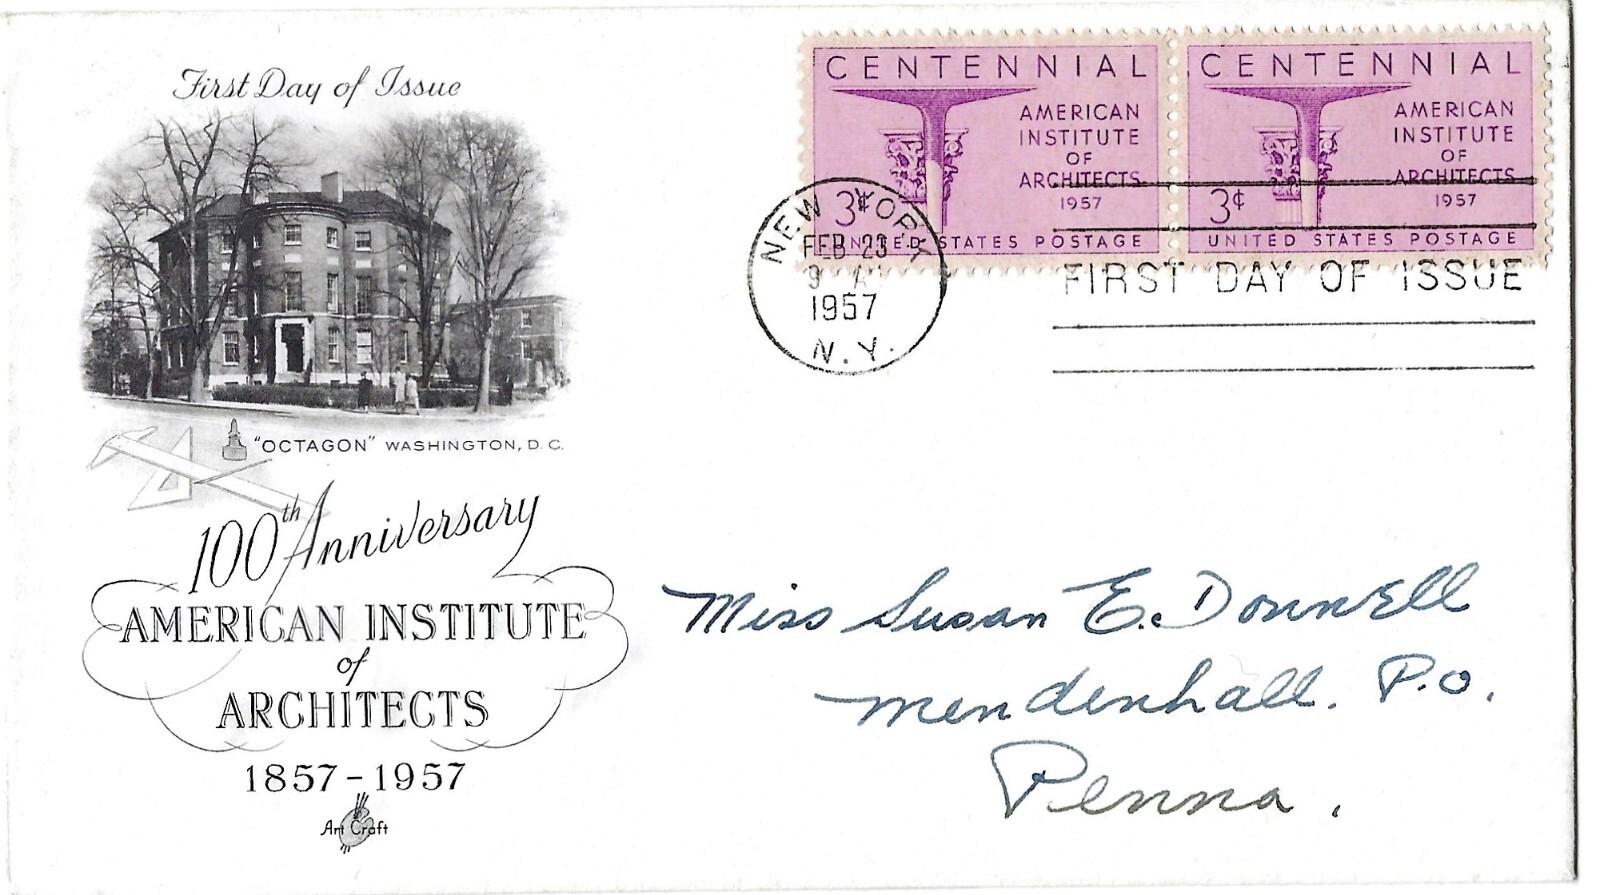 First Day of Issue
"OCTAGON" WASHINGTON, D. C.
100th Anniversary
AMERICAN INSTITUTE
of
ARCHITECTS
1857-1957
Art Craft
CENTENNIAL
AMERICAN
INSTITUTE
OF
ARCHITECTS
1957
3¢
UNITED STATES POSTAGE
CENTENNIAL
AMERICAN
INSTITUTE
OF
ARCHITECTS
1957
3¢
UNITED STATES POSTAGE
NEW YORK
FEB 23
9 A
1957
N.Y.
FIRST DAY OF ISSUE
Miss Susan E. Donnell
Mendenhall. P.O.
Penna.